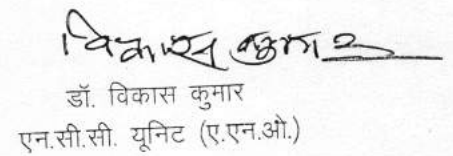 विकास कुमार
डॉ. विकास कुमार
एन.सी.सी. यूनिट (ए.एन.ओ.)